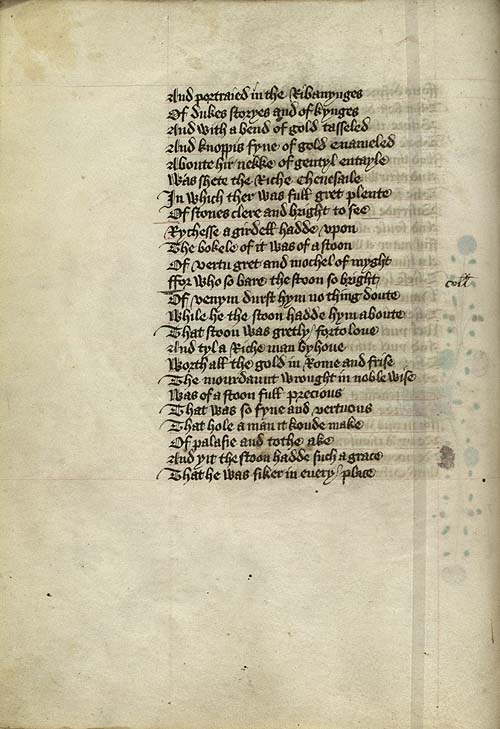 And portraied in the Ribanynges
Of dukes storyes and of kynges
And with a bend of gold tasseled
And knoppis fyne of gold enameled
Aboute hir nekke of gentyl entayle
Was shete the Riche cheuesaile
In which ther was full gret plente
Of stones clere and bright to see
Rychesse a girdell hadde vpon
The bokele of it was of a stoon
Of vertu gret and mochel of myght
ffor who so bare the stoon so bright
Of venym durst hym no thing doute
While he the stoon hadde hym aboute
That stoon was gretly forto loue
And tyl a Riche man byhoue
Worth all the gold in Rome and frise
The mourdaunt wrought in noble wise
Was of a stoon full precious
That was so fyne and vertuous
That hole a man it koude make
Of palasie and tothe ake
And yit the stoon hadde such a grace
That he was siker in euery place
coll